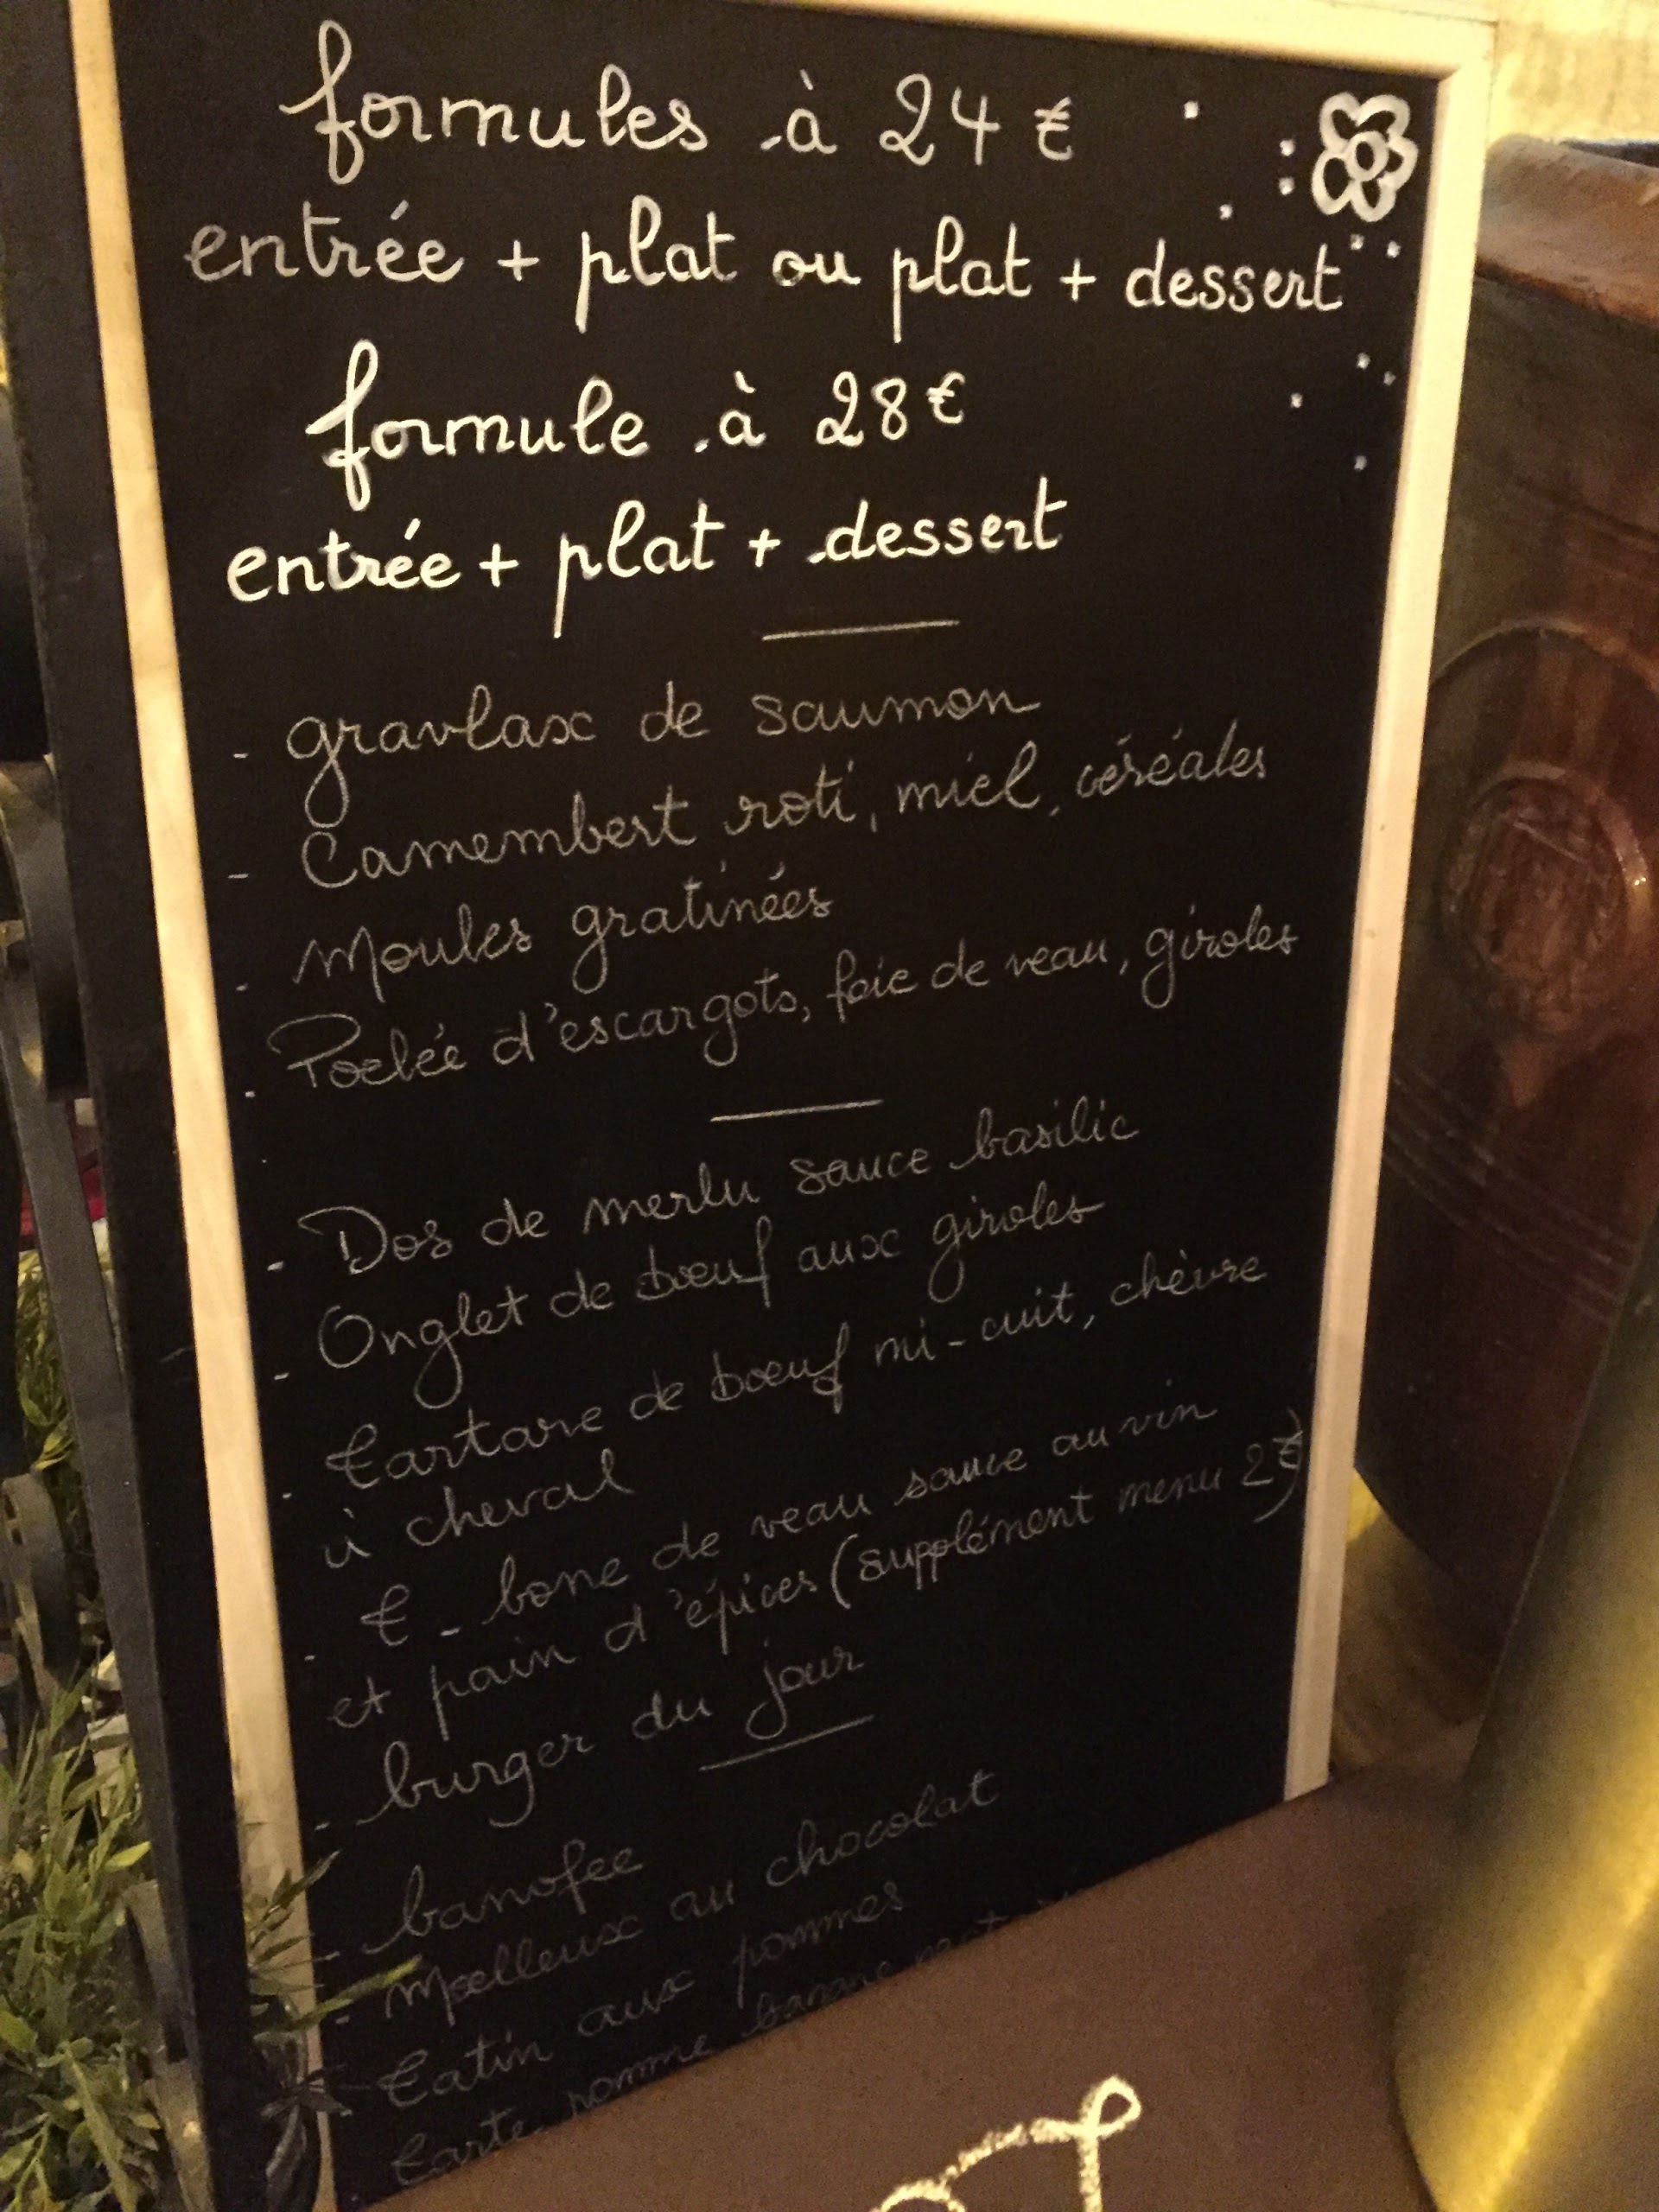 formules à 24 €
entrée + plat ou plat + dessert
formule à 28 €
entrée + plat + dessert
- gravlax de saumon
- Camembert roti, miel, céréales
- Moules gratinées
- Poelée d'escargots, foie de veau, giroles
- Dos de merlu sauce basilic
- Onglet de boeuf aux giroles
- tartare de boeuf mi-cuit, chèvre
à cheval
- t-bone de veau sauce au vin
et pain d'épices (supplément menu 2€)
- burger du jour
- banofee
- Moelleux au chocolat
- tatin aux pommes
tarte pomme banane